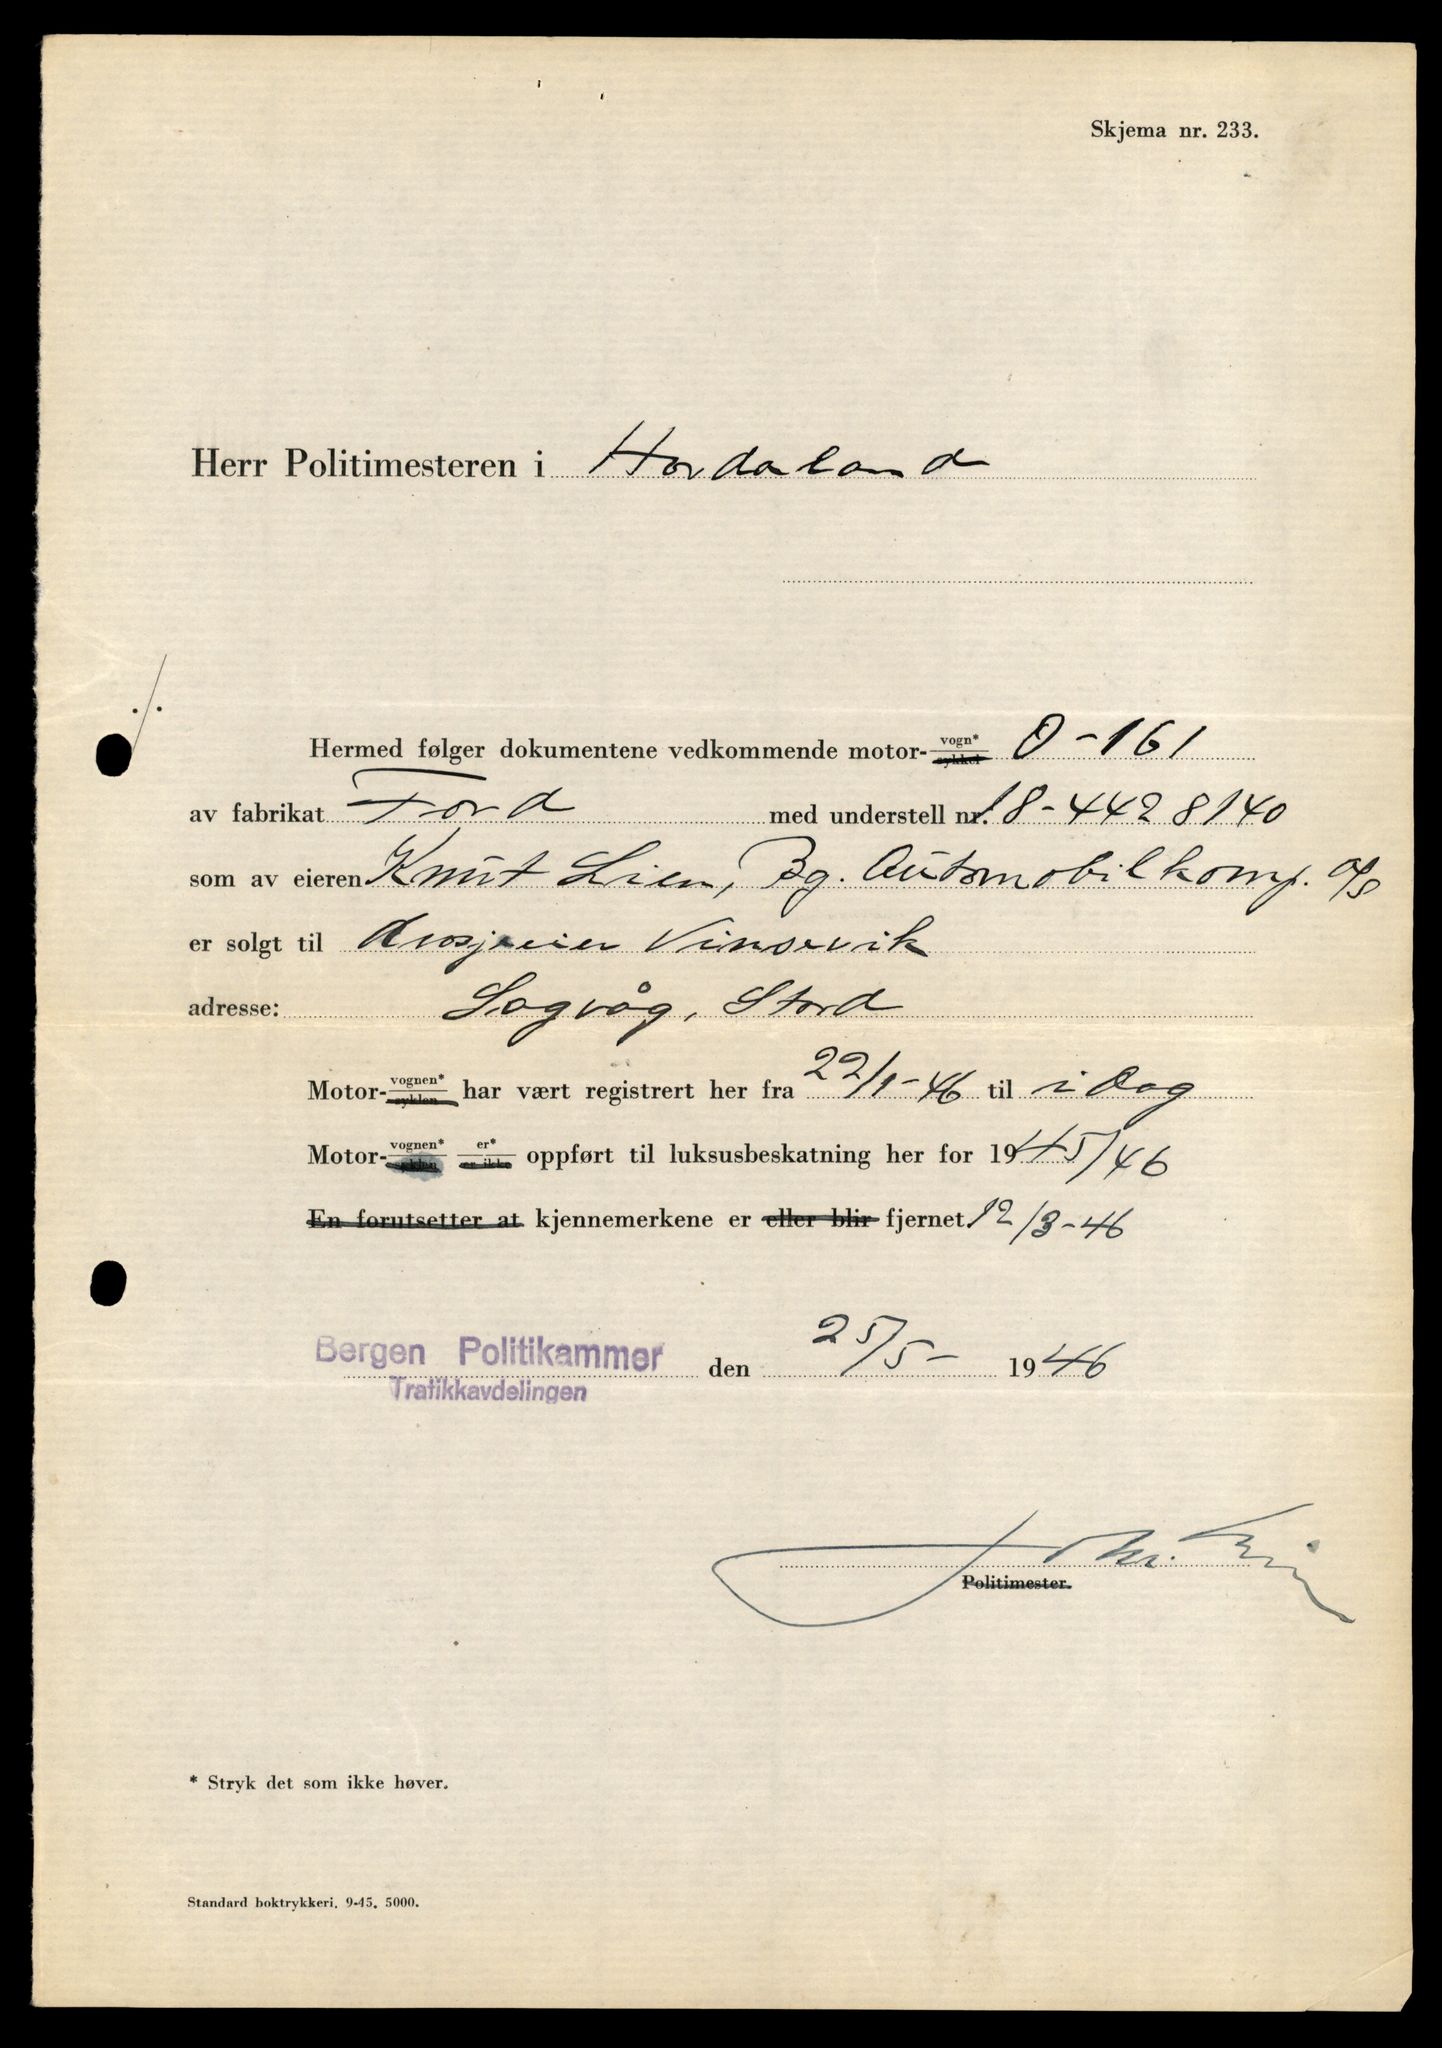 Skjema nr. 233.
Herr Politimesteren i Hordaland
./.
Hermed følger dokumentene vedkommende motor- vogn* / sykkel O-161
av fabrikat Ford med understell nr. 18-4428140
som av eieren Knut Lien, Bg. Automobilkomp. A/S
er solgt til Drosjeeier Vinsevik
adresse: Sagvåg, Stord
Motor- vognen* / syklen har vært registrert her fra 22/1-46 til i dag
Motor- vognen* / syklen er* / er ikke oppført til luksusbeskatning her for 1945/46
En forutsetter at kjennemerkene er eller blir fjernet. 12/3-46
Bergen Politikammer den 25/5- 1946
Trafikkavdelingen
Politimester.
* Stryk det som ikke høver.
Standard boktrykkeri. 9-45. 5000.